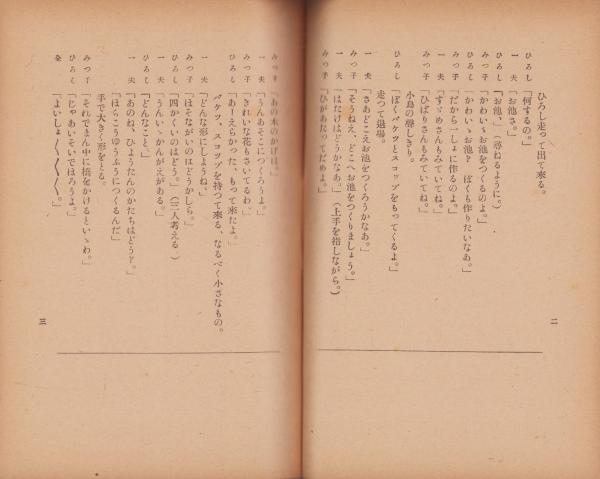 ひろし走って出て來る。
ひろし「何するの。」
一夫「お池さ。」
ひろし「お池、」（尋ねるように。）
みつ子「かわいゝお池をつくるのよ。」
ひろし「かわいゝお池？ ぼくも作りたいなあ。」
みつ子「だから一しょに作るのよ。」
一夫「すゞめさんもみていてね。」
みつ子「ひばりさんもみていてね。」
小鳥の聲しきり。
ひろし「ぼくバケツとスコップをもってくるよ。」
走つて退場。
一夫「さあどこえお池をつくろうかなあ。」
みつ子「そうねえ、どこへお池をつくりましょう。」
一夫「はたけはどうかなあ。」（上手を指しながら。）
みつ子「ひがあたってだめよ。」
二
みつ子「あの木のかげは。」
一夫「うんあそこにつくろうよ。」
みつ子「きれいな花もさいてるわ。」
ひろし「あーえらかった、もって來たよ。」
バケツ、スコップを持つて來る、なるべく小さなもの。
一夫「どんな形にしようね。」
みつ子「ほそながいのはどうかしら。」
ひろし「四かくいのはどう。」（三人考える）
一夫「うんいゝかんがえがある。」
ひろし「どんなこと。」
一夫「あのね、ひょうたんのかたちはどう？。」
「ほらこうゆうふうにつくるんだ」
手で大きく形をとる。
みつ子「それでまん中に橋をかけるといゝわ。」
ひろし「じゃあいそいでほろうよ。」
全「よいしょ〱〱〱〱。」
三